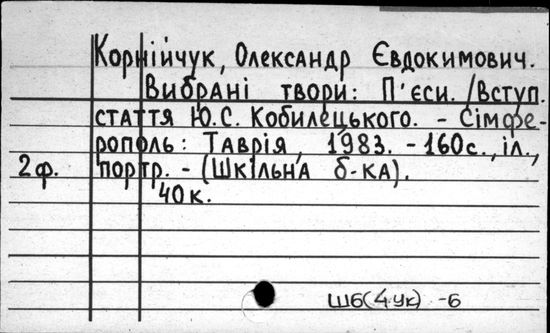 Корнійчук, Олександр Євдокимович.
Вибрані твори: П'єси. /Вступ.
стаття Ю.С. Кобилецького. – Сімфе-
рополь: Таврія, 1983. – 160с., іл.,
2ф. портр. – (Шкільна б-ка).
40к.
Ш6(4Ук) -6